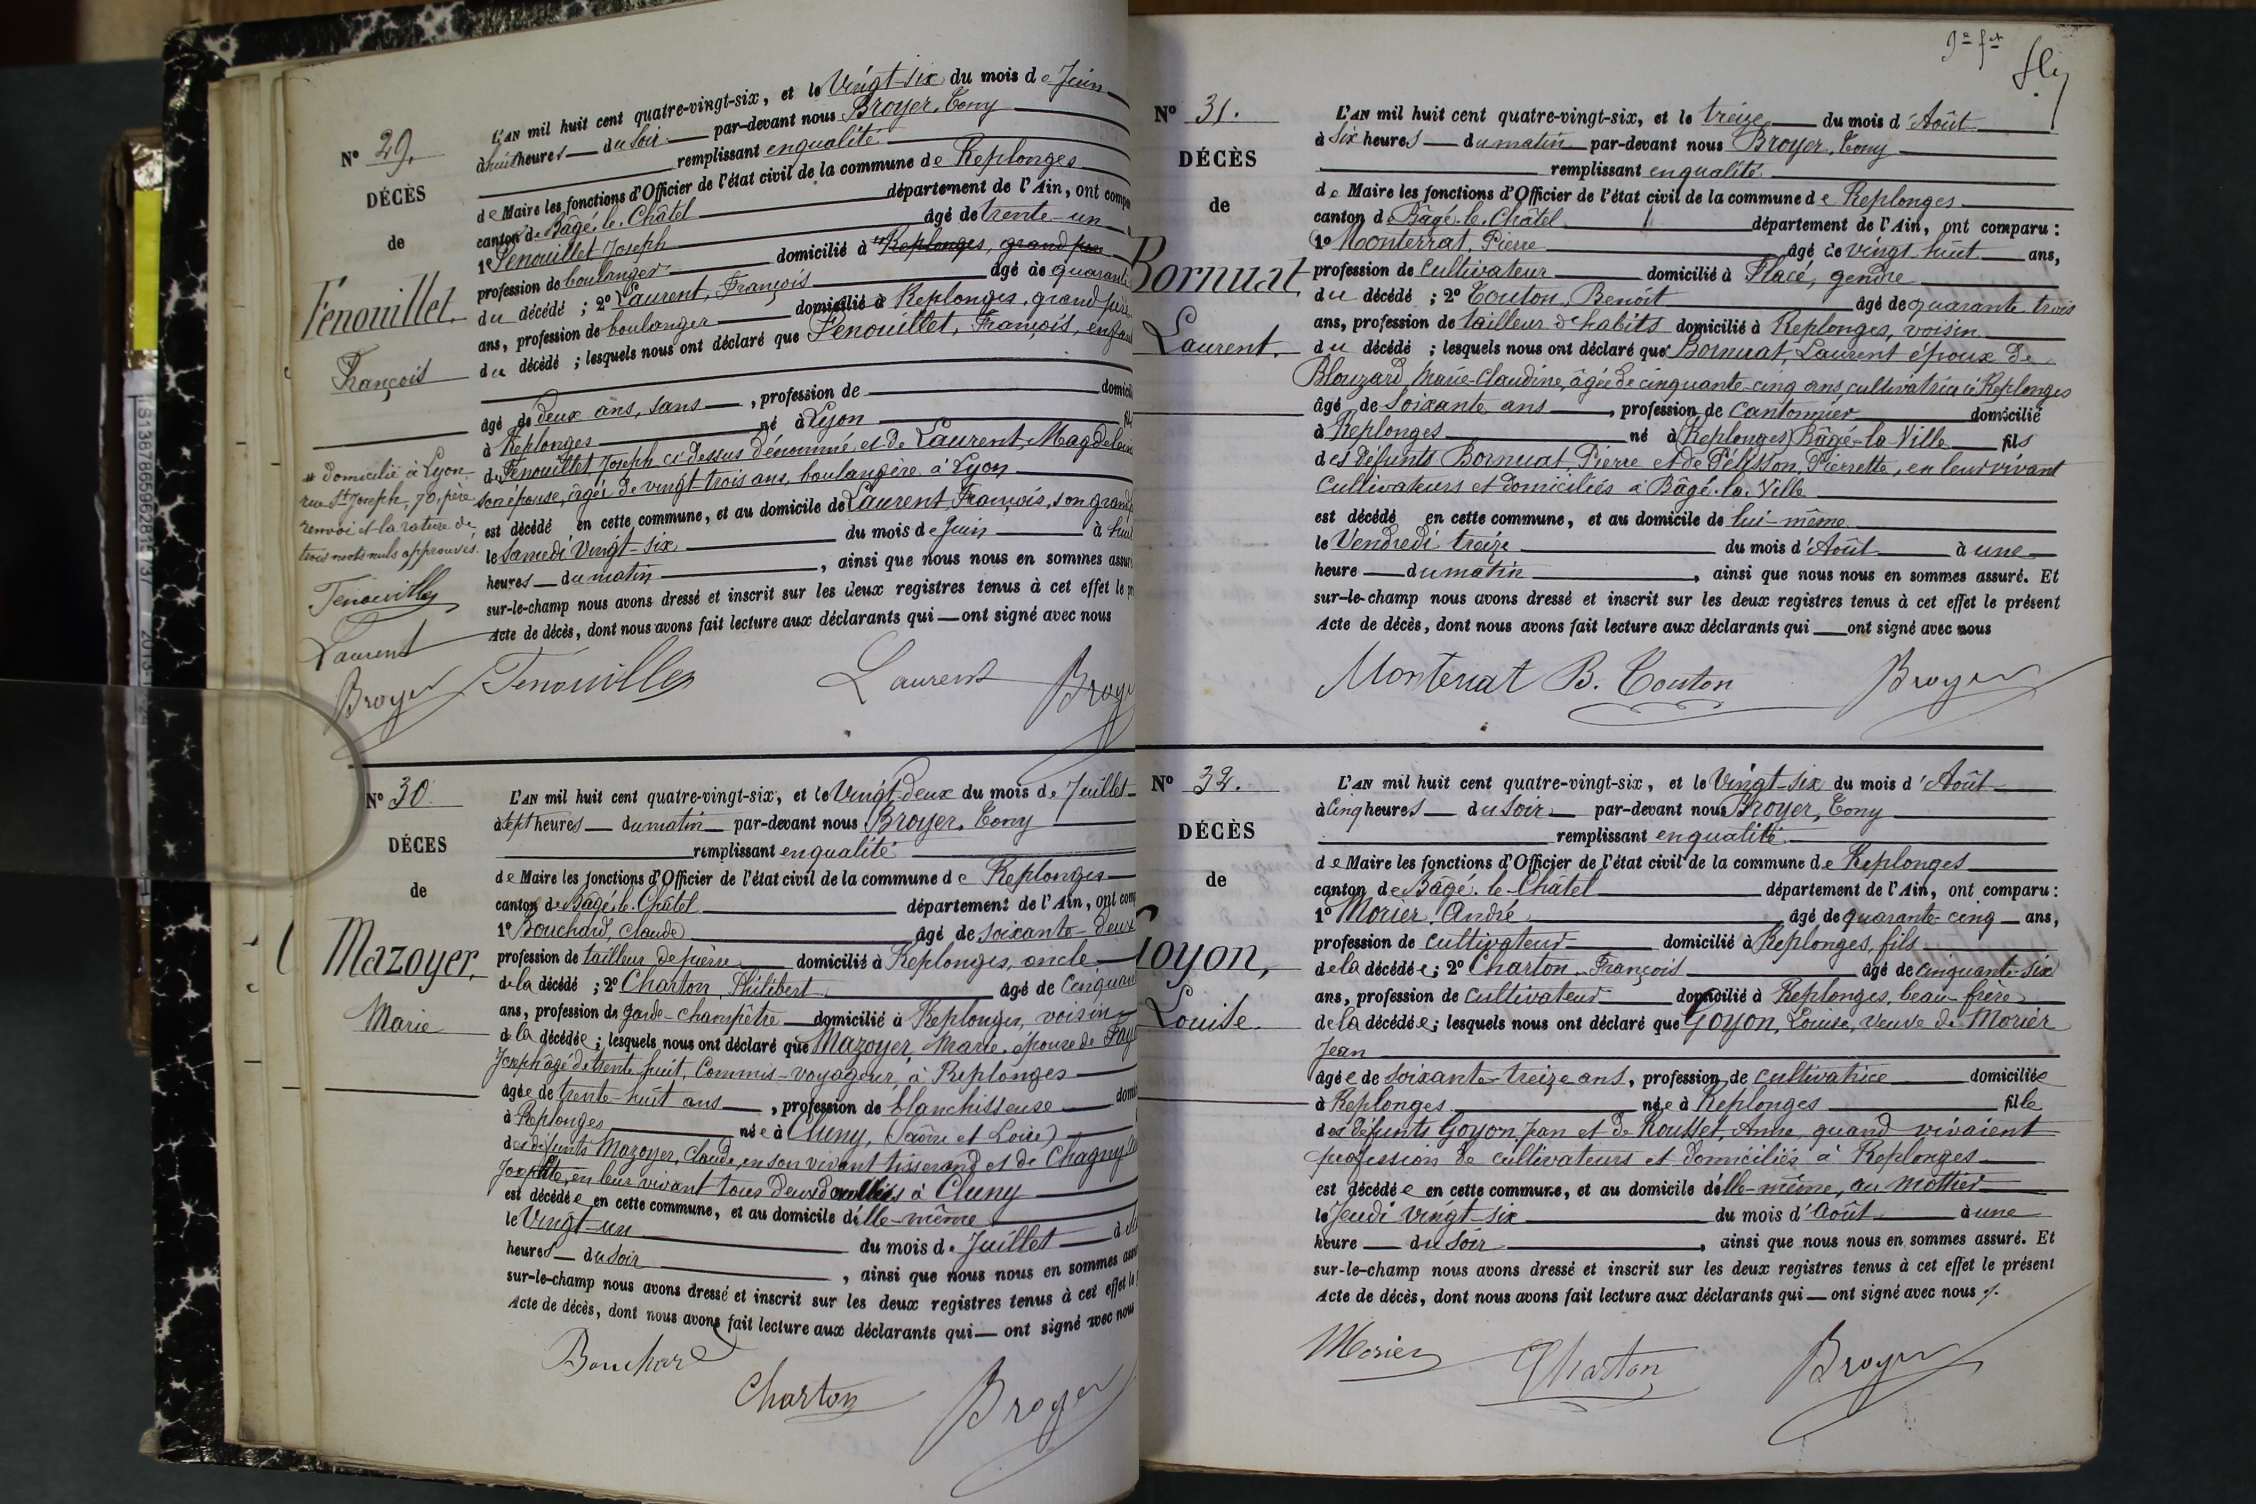 L'AN mil huit cent quatre-vingt-six, et le Vingt-six du mois de Juin
à huit heures du soir par-devant nous Broyer, Tony
remplissant en qualité
de Maire les fonctions d'Officier de l'état civil de la commune de Replonges
canton de Bâgé-le-Châtel département de l'Ain, ont comp
1º Fenouillet Joseph âgé de trente-un
profession de boulanger domicilié à # Replonges, grand père
du décédé ; 2º Laurent, François âgé de quarante
ans, profession de boulanger domicilié à Replonges, grand père
du décédé ; lesquels nous ont déclaré que Fenouillet, François, enfant
âgé de deux ans, sans , profession de domicil
à Replonges né à Lyon fil
de Fenouillet Joseph ci-dessus dénommé, et de Laurent, Magdeleine
son épouse, âgée de vingt-trois ans, boulangère à Lyon
est décédé en cette commune, et au domicile de Laurent, François, son grand
le Samedi Vingt-six du mois de Juin à huit
heures du matin , ainsi que nous nous en sommes assuré
sur-le-champ nous avons dressé et inscrit sur les deux registres tenus à cet effet le pr
Acte de décès, dont nous avons fait lecture aux déclarants qui ont signé avec nous
Nº 29.
DÉCÈS
de
Fenouillet.
François
# domicilié à Lyon
rue St Joseph, 70, père
renvoi et la rature de
trois mots nuls approuvés.
Fenouillet
Laurent
Broyer Fenouillet Laurent Broye
Nº 30
DÉCES
de
Mazoyer,
Marie
L'AN mil huit cent quatre-vingt-six, et le Vingt-deux du mois de Juillet
à sept heures du matin par-devant nous Broyer, Tony
remplissant en qualité
de Maire les fonctions d'Officier de l'état civil de la commune de Replonges
canton de Bâgé-le-Châtel département de l'Ain, ont comp
1º Bouchard, Claude âgé de soixante-deux
profession de tailleur de pierre domicilié à Replonges, oncle
de la décédé ; 2º Charton, Philibert âgé de Cinquan
ans, profession de garde-champêtre domicilié à Replonges, voisin
de la décédée ; lesquels nous ont déclaré que Mazoyer, Marie, épouse de Fay
Joseph âgé de trente-huit, Commis-voyageur, à Replonges
âgée de trente-huit ans , profession de blanchisseuse domi
à Replonges née à Cluny, (Saône et Loire)
des défunts Mazoyer, Claude, en son vivant tisserand et de Chagny
Josephte, en leur vivant tous deux domiciliés à Cluny
est décédée en cette commune, et au domicile d'elle-même
le Vingt-un du mois de Juillet à
heures du soir , ainsi que nous nous en sommes assu
sur-le-champ nous avons dressé et inscrit sur les deux registres tenus à cet effet le
Acte de décès, dont nous avons fait lecture aux déclarants qui ont signé avec nous
Bouchard
Charton Broyer
Nº 31.
DÉCÈS
de
Bornuat
Laurent.
L'AN mil huit cent quatre-vingt-six, et le treize du mois d'Août
à Six heures du matin par-devant nous Broyer, Tony
remplissant en qualité
de Maire les fonctions d'Officier de l'état civil de la commune de Replonges
canton de Bâgé-le-Châtel département de l'Ain, ont comparu :
1º Monterrat, Pierre âgé de vingt-huit ans,
profession de Cultivateur domicilié à Flacé, gendre
du décédé ; 2º Touton, Benoît âgé de quarante-trois
ans, profession de tailleur d'habits domicilié à Replonges, voisin
du décédé ; lesquels nous ont déclaré que Bornuat, Laurent époux de
Blouzard, Marie-Claudine, âgée de cinquante-cinq ans, cultivatrice à Replonges
âgé de Soixante ans , profession de Cantonnier domicilié
à Replonges né à Replonges, Bâgé-la-Ville fils
des défunts Bornuat, Pierre et de Pélisson, Pierrette, en leur vivant
Cultivateurs et domiciliés à Bâgé-la-Ville
est décédé en cette commune, et au domicile de lui-même
le Vendredi treize du mois d'Août à une
heure du matin , ainsi que nous nous en sommes assuré. Et
sur-le-champ nous avons dressé et inscrit sur les deux registres tenus à cet effet le présent
Acte de décès, dont nous avons fait lecture aux déclarants qui ont signé avec nous
Monterrat B. Touton Broyer
Nº 32.
DÉCÈS
de
Goyon,
Louise
L'AN mil huit cent quatre-vingt-six, et le Vingt-six du mois d'Août
à Cinq heures du Soir par-devant nous Broyer, Tony
remplissant en qualité
de Maire les fonctions d'Officier de l'état civil de la commune de Replonges
canton de Bâgé-le-Châtel département de l'Ain, ont comparu :
1º Morier, André âgé de quarante-cinq ans,
profession de cultivateur domicilié à Replonges, fils
de la décédée ; 2º Charton François âgé de cinquante-six
ans, profession de cultivateur domicilié à Replonges, beau-frère
de la décédée ; lesquels nous ont déclaré que Goyon, Louise, veuve de Morier
Jean
âgée de soixante-treize ans , profession de cultivatrice domiciliée
à Replonges née à Replonges fille
des défunts Goyon, Jean et de Rousset, Anne, quand vivaient
profession de cultivateurs et domiciliés à Replonges
est décédée en cette commune, et au domicile d'elle-même, au Mottier
le Jeudi vingt-six du mois d'Août à une
heure du Soir , ainsi que nous nous en sommes assuré. Et
sur-le-champ nous avons dressé et inscrit sur les deux registres tenus à cet effet le présent
Acte de décès, dont nous avons fait lecture aux déclarants qui ont signé avec nous
Morier Charton Broyer